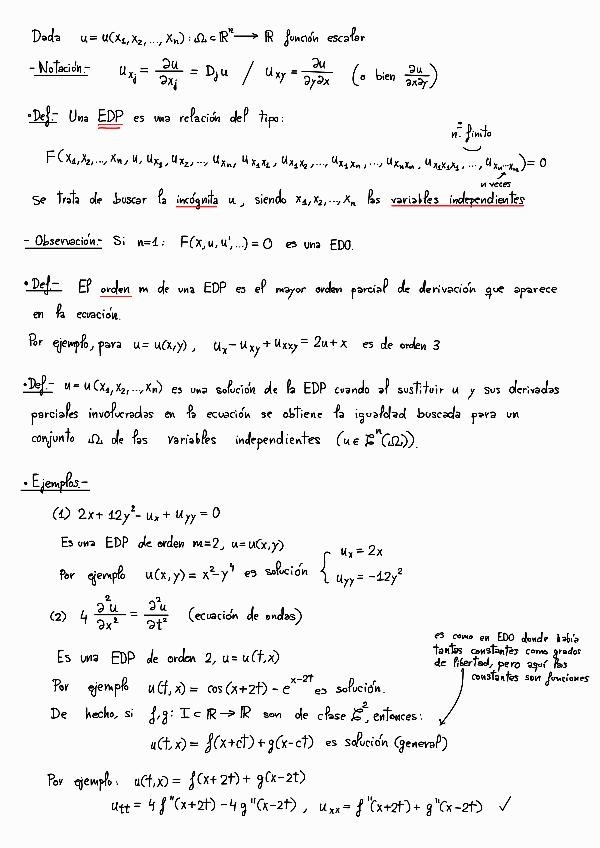 Dada u = u(x₁, x₂, ..., xₙ) : Ω ⊂ ℝⁿ → ℝ función escalar
- Notación.- u_{xⱼ} = ∂u/∂xⱼ = Dⱼu / u_{xy} = ∂u/∂y∂x (o bien ∂u/∂x∂y)
• Def.- Una EDP es una relación del tipo:
nº finito
F(x₁, x₂, ..., xₙ, u, u_{x₁}, u_{x₂}, ..., u_{xₙ}, u_{x₁x₁}, u_{x₁x₂}, ..., u_{x₁xₙ}, ..., u_{xₙxₙ}, u_{x₁x₁x₁}, ..., u_{xₙ...xₙ}) = 0
n veces
Se trata de buscar la incógnita u, siendo x₁, x₂, ..., xₙ las variables independientes
- Observación.- Si n=1: F(x, u, u', ...) = 0 es una EDO.
• Def.- El orden m de una EDP es el mayor orden parcial de derivación que aparece
en la ecuación.
Por ejemplo, para u = u(x,y), uₓ - u_{xy} + u_{xxy} = 2u + x es de orden 3
• Def.- u = u(x₁, x₂, ..., xₙ) es una solución de la EDP cuando al sustituir u y sus derivadas
parciales involucradas en la ecuación se obtiene la igualdad buscada para un
conjunto Ω de las variables independientes (u ∈ ℰⁿ(Ω)).
• Ejemplos.-
(1) 2x + 12y² - uₓ + u_{yy} = 0
Es una EDP de orden m=2, u = u(x,y)
Por ejemplo u(x,y) = x² - y⁴ es solución { uₓ = 2x
u_{yy} = -12y²
(2) 4 ∂²u/∂x² = ∂²u/∂t² (ecuación de ondas)
es como en EDO donde había
tantas constantes como grados
de libertad, pero aquí las
constantes son funciones
Es una EDP de orden 2, u = u(t,x)
Por ejemplo u(t,x) = cos(x+2t) - e^{x-2t} es solución.
De hecho, si f,g: I ⊂ ℝ → ℝ son de clase ℰ², entonces:
u(t,x) = f(x+ct) + g(x-ct) es solución (general)
Por ejemplo: u(t,x) = f(x+2t) + g(x-2t)
u_{tt} = 4f''(x+2t) - 4g''(x-2t), u_{xx} = f''(x+2t) + g''(x-2t) ✓